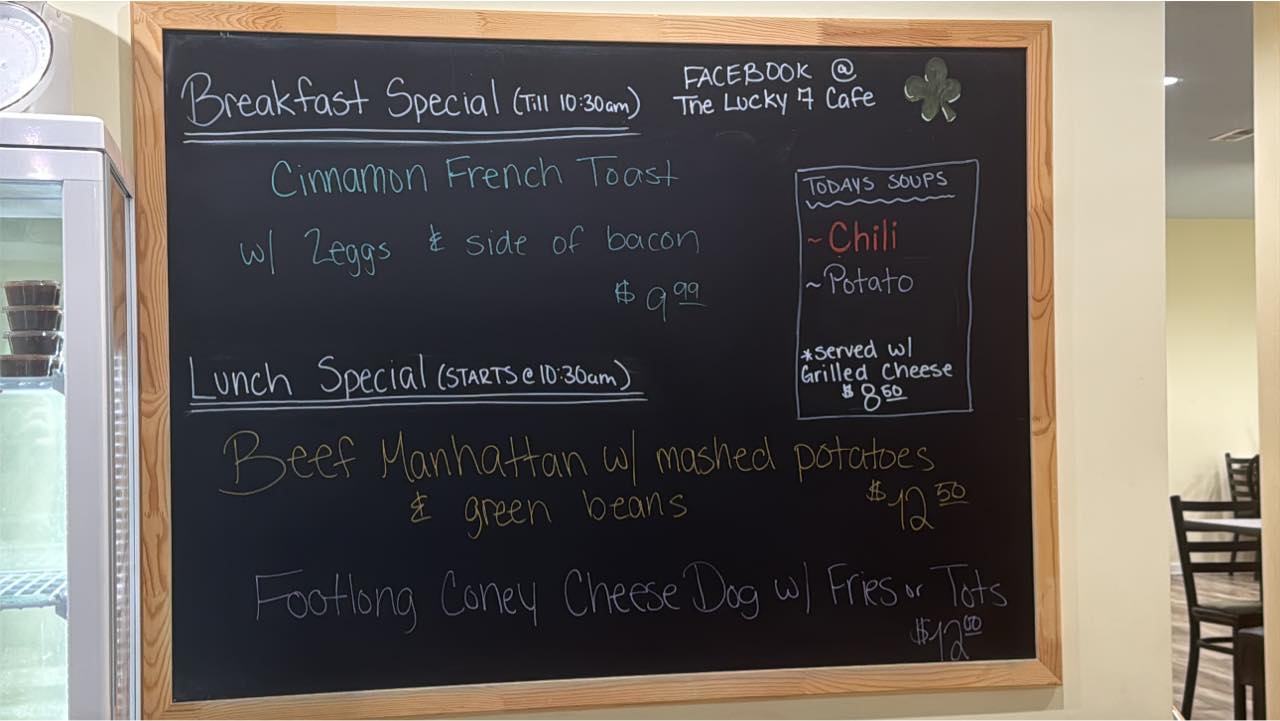 Breakfast Special (Till 10:30am)
Cinnamon French Toast
w/ 2eggs & side of bacon
$9.99
FACEBOOK @
The Lucky 7 Cafe
TODAYS SOUPS
~Chili
~Potato
*served w/
Grilled Cheese
$8.50
Lunch Special (STARTS @ 10:30am)
Beef Manhattan w/ mashed potatoes
& green beans
$12.50
Footlong Coney Cheese Dog w/ Fries or Tots
$12.00